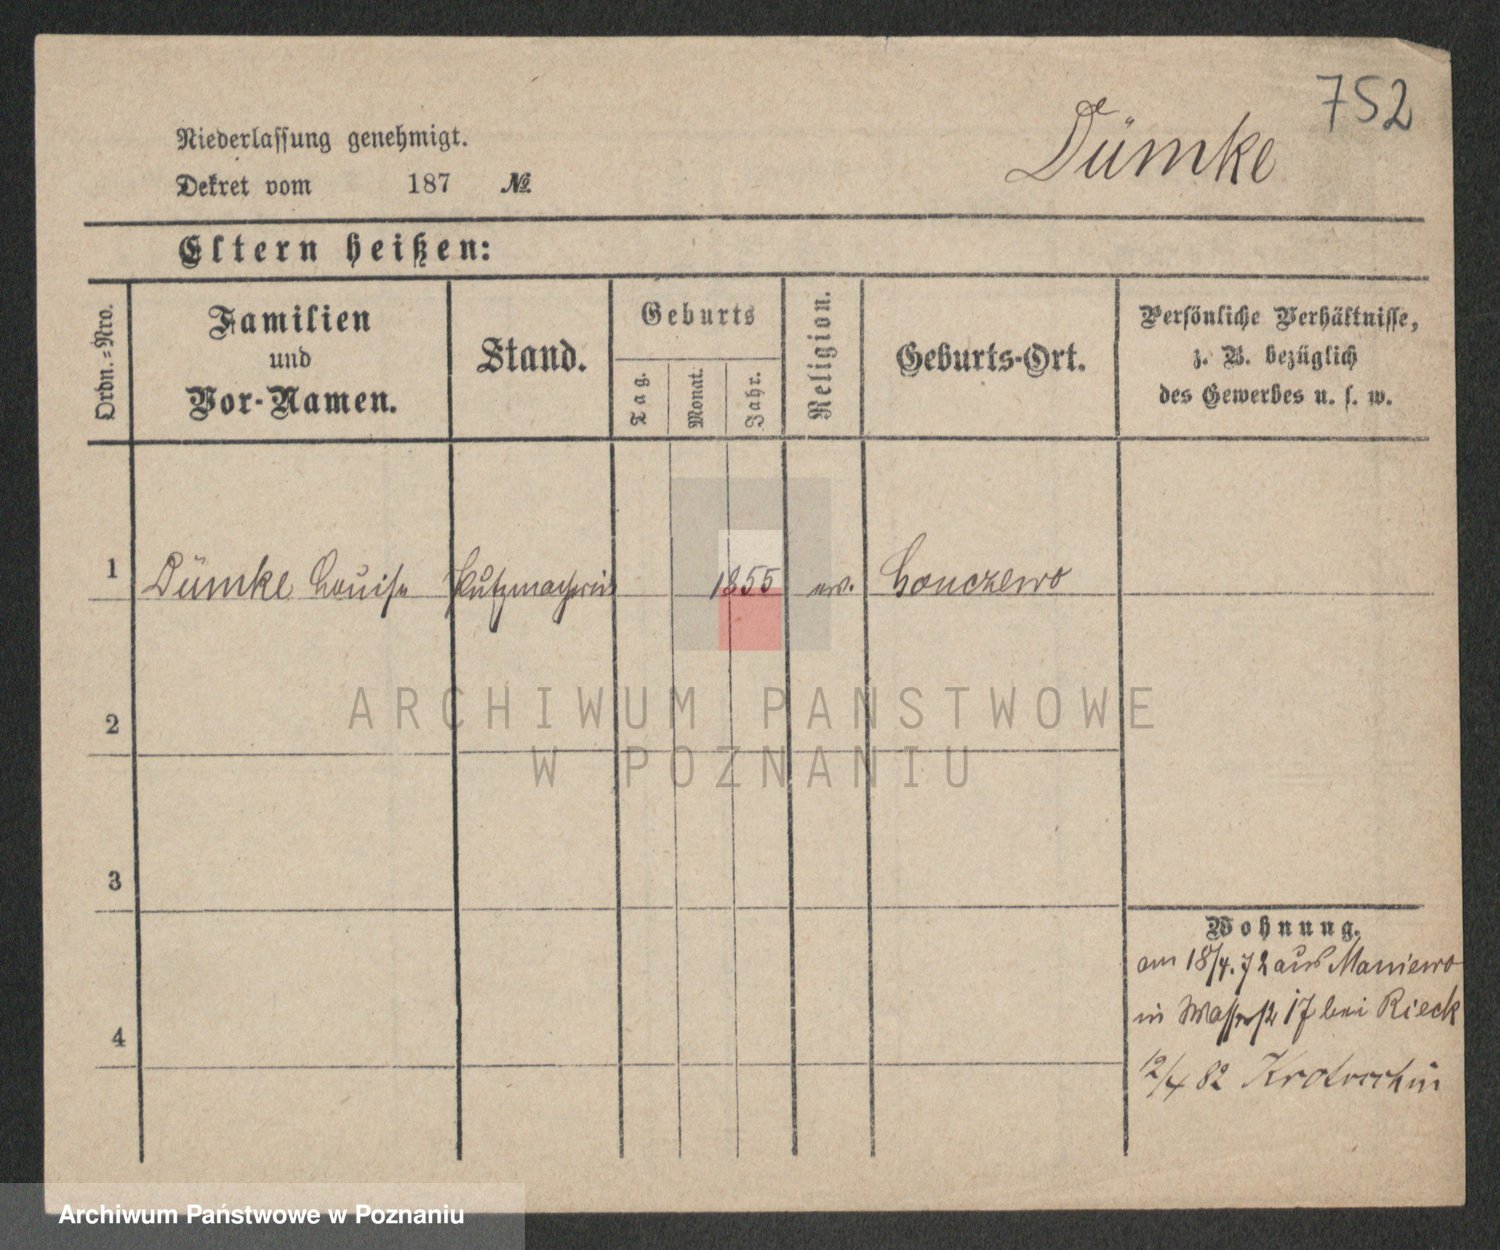 752
Dümke
Niederlassung genehmigt.
Dekret vom 187 №
Eltern heißen:
Ordn.=Nro.
Familien
und
Vor-Namen.
Stand.
Geburts
Tag.
Monat.
Jahr.
Religion.
Geburts-Ort.
Persönliche Verhältnisse,
z. B. bezüglich
des Gewerbes u. s. w.
1 Dümke Louise Putzmacherin 1855 ev.
2
3
4
Wohnung.
am 18/4. 72 aus Maniewo
in Wasserstr 17 bei Rieck
12/4 82 Krotoschin
ARCHIWUM PAŃSTWOWE
W POZNANIU
Archiwum Państwowe w Poznaniu